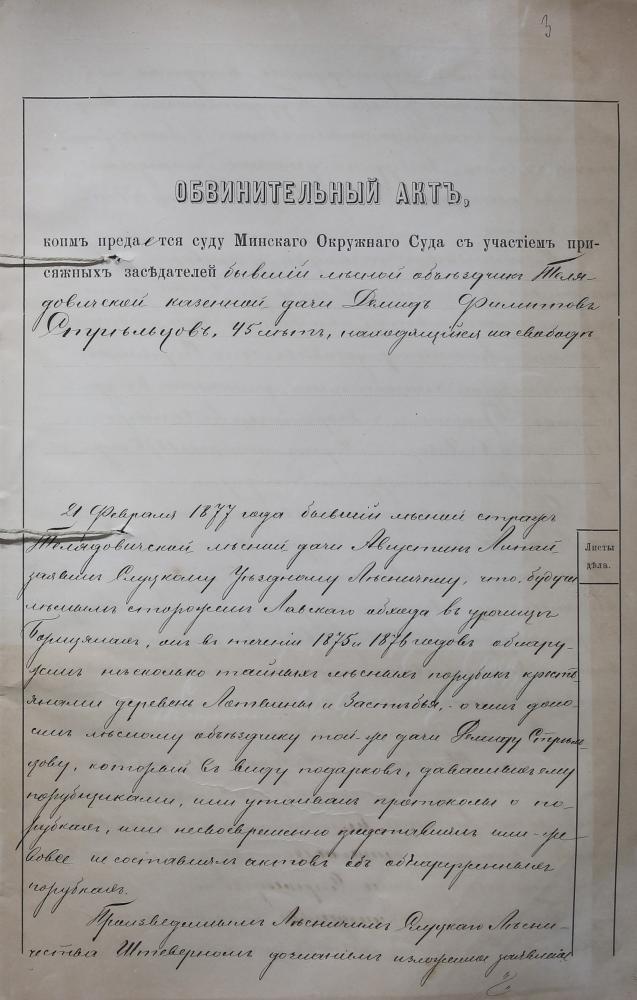 3
ОБВИНИТЕЛЬНЫЙ АКТЪ,
коимъ предается суду Минскаго Окружнаго Суда съ участіемъ при-
сяжныхъ засѣдателей бывшій лѣсной объѣздчикъ Теля-
довичской казенной дачи Демидъ Филитовъ
Стрѣльцовъ, 45 лѣтъ, находящійся на свободѣ
21 Февраля 1877 года бывшій лѣсной стражъ
Телядовичской лѣсной дачи Августинъ Литай
заявилъ Слуцкому Уѣздному Лѣсничему, что, будучи
лѣснымъ сторожемъ Лавскаго обхода въ урочищѣ
онъ въ теченіи 1875 и 1876 годовъ обнару-
жилъ нѣсколько тайныхъ лѣсныхъ порубокъ кресть-
янами деревень Лотвины и Застѣбья, - о чемъ доно-
силъ лѣсному объѣздчику той-же дачи Демиду Стрѣль-
цову, который въ виду подарковъ, дававшихъ ему
порубщиками, или утаивалъ протоколы о по-
рубкахъ, или несвоевременно представлялъ или-же
вовсе не составлялъ актовъ объ обнаруженныхъ
порубкахъ.
Произведеннымъ Лѣсничимъ Слуцкаго Лѣсни-
чества Штеверномъ дознаніемъ изложенныя заявленія
Листы
дѣла.